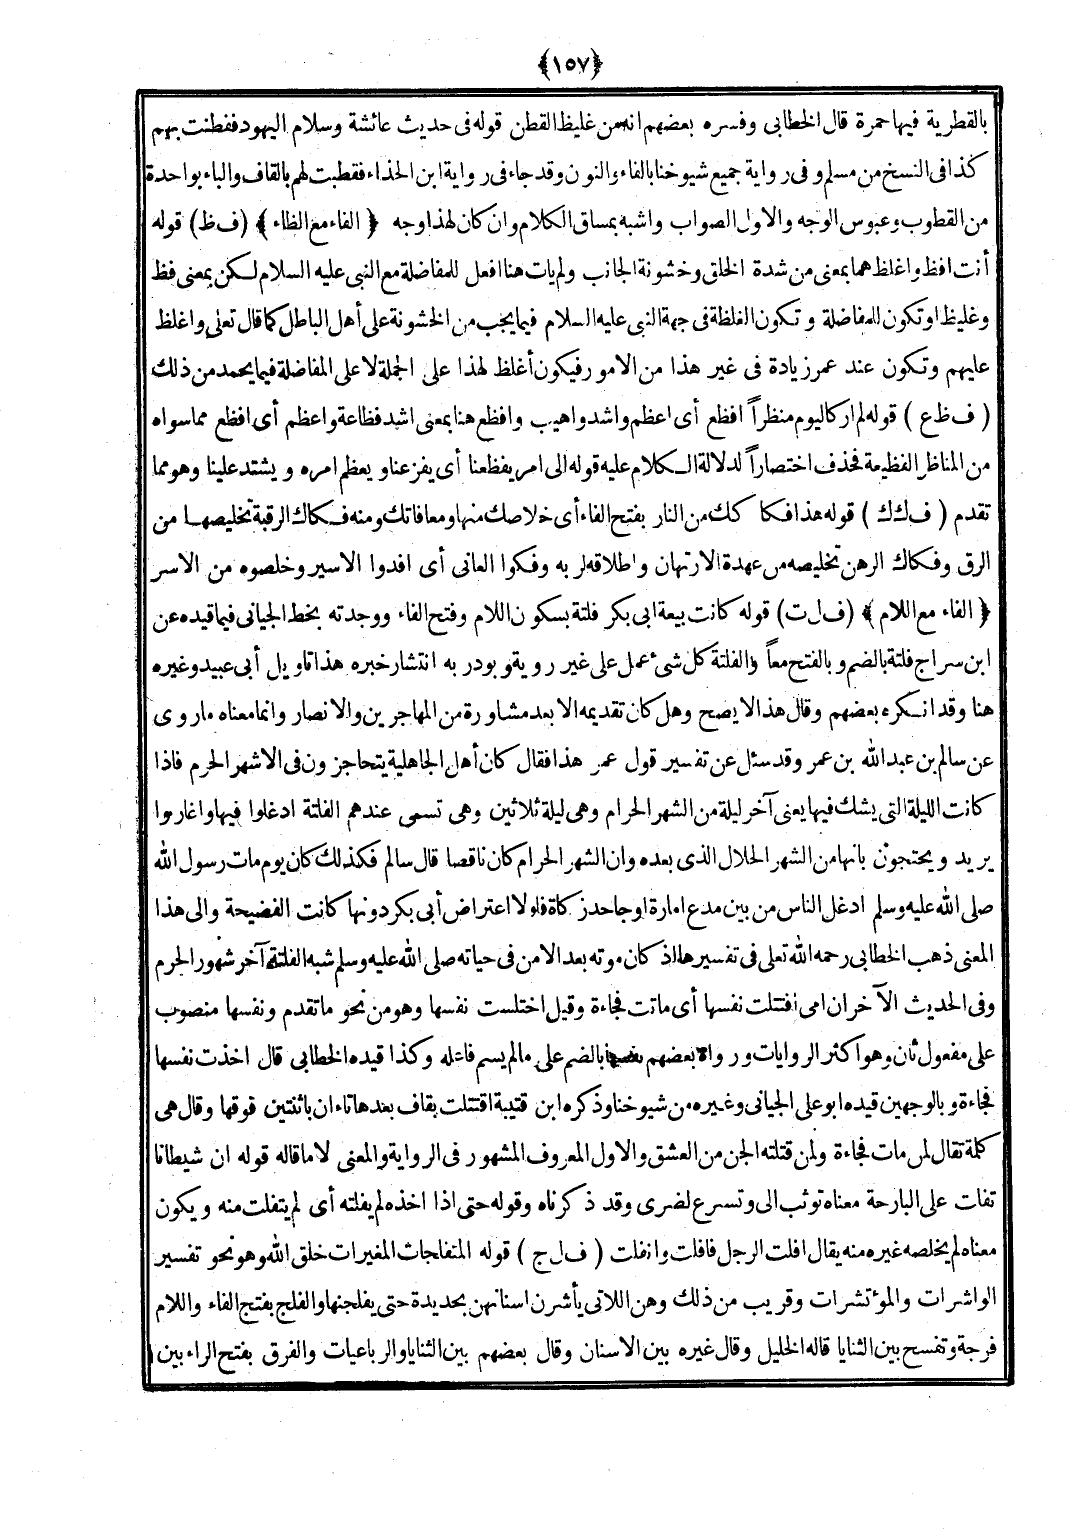 ﴿١٥٧﴾
بالقطرية فيها حمرة قال الخطابى وفسره بعضهم انه من غليظ القطن قوله فى حديث عائشة وسلام اليهود ففطنت بهم
كذا فى النسخ من مسلم وفى رواية جميع شيوخنا بالفاء والنون وقد جاء فى رواية ابن الحذاء فقطبت لهم بالقاف والباء بواحدة
من القطوب وعبوس الوجه والاول الصواب واشبه بمساق الكلام وان كان لهذا وجه ﴿ الفاء مع الظاء ﴾ (ف ظ) قوله
أنت افظ واغلظ هما بمعنى من شدة الخلق وخشونة الجانب ولم يات هنا افعل للمفاضلة مع النبى عليه السلام لكن بمعنى فظ
وغليظ او تكون للمفاضلة وتكون الغلظة فى جهة النبى عليه السلام فيما يجب من الخشونة على أهل الباطل كما قال تعلى واغلظ
عليهم وتكون عند عمر زيادة فى غير هذا من الامور فيكون أغلظ لهذا على الجملة لا على المفاضلة فيما يحمد من ذلك
( ف ظ ع ) قوله لم ار كاليوم منظراً افظع أى اعظم واشد واهيب وافظع هنا بمعنى اشد فظاعة واعظم أى افظع مما سواه
من المناظر الفظيعة فحذف اختصاراً لدلالة الكلام عليه قوله الى امر يفظعنا أى يفزعنا ويعظم امره ويشتد علينا وهو مما
تقدم ( ف ك ك ) قوله هذا فكاكك من النار بفتح الفاء أى خلاصك منها ومعافاتك ومنه فكاك الرقبة تخليصها من
الرق وفكاك الرهن تخليصه من عهدة الارتهان واطلاقه لربه وفكوا العانى أى افدوا الاسير وخلصوه من الاسر
﴿ الفاء مع اللام ﴾ (ف ل ت) قوله كانت بيعة ابى بكر فلتة بسكون اللام وفتح الفاء ووجدته بخط الجيانى فيما قيده عن
ابن سراج فلتة بالضم وبالفتح معاً والفلتة كل شىء عمل على غير روية وبودر به انتشار خبره هذا تاويل أبى عبيد وغيره
هنا وقد انكره بعضهم وقال هذا لا يصح وهل كان تقديمه الا بعد مشاورة من المهاجرين والانصار وانما معناه ما روى
عن سالم بن عبد الله بن عمر وقد سئل عن تفسير قول عمر هذا فقال كان أهل الجاهلية يتحاجزون فى الاشهر الحرم فاذا
كانت الليلة التى يشك فيها يعنى آخر ليلة من الشهر الحرام وهى ليلة ثلاثين وهى تسمى عندهم الفلتة ادغلوا فيها واغاروا
يريد ويحتجون بانها من الشهر الحلال الذى بعده وان الشهر الحرام كان ناقصا قال سالم فكذلك كان يوم مات رسول الله
صلى الله عليه وسلم ادغل الناس من بين مدع امارة او جاحد زكاة فلولا اعتراض أبى بكر دونها كانت الفضيحة والى هذا
المعنى ذهب الخطابى رحمه الله تعلى فى تفسيرها اذ كان موته بعد الامن فى حياته صلى الله عليه وسلم شبه الفلتة آخر شهور الحرم
وفى الحديث الآخر ان امى افتلتت نفسها أى ماتت فجاءة وقيل اختلست نفسها وهو من نحو ما تقدم ونفسها منصوب
على مفعول ثان وهو اكثر الروايات ورواه بعضهم نفسها بالضم على ما لم يسم فاعله وكذا قيده الخطابى قال اخذت نفسها
فجاءة وبالوجهين قيده ابو على الجيانى وغيره من شيوخنا وذكره ابن قتيبة اقتتلت بقاف بعدها تاءان باثنتين فوقها وقال هى
كلمة تقال لمن مات فجاءة ولمن قتلته الجن من العشق والاول المعروف المشهور فى الرواية والمعنى لا ما قاله قوله ان شيطانا
تفلت على البارحة معناه توثب الى وتسرع لضرى وقد ذكرناه وقوله حتى اذا اخذه لم يفلته أى لم يتفلت منه ويكون
معناه لم يخلصه غيره منه يقال افلت الرجل فافلت وانفلت ( ف ل ج ) قوله المتفلجات المغيرات خلق الله وهو نحو تفسير
الواشرات والمؤتشرات وقريب من ذلك وهن اللاتى يأشرن اسنانهن بحديدة حتى يفلجنها والفلج بفتح الفاء واللام
فرجة وتفسح بين الثنايا قاله الخليل وقال غيره بين الاسنان وقال بعضهم بين الثنايا والرباعيات والفرق بفتح الراء بين